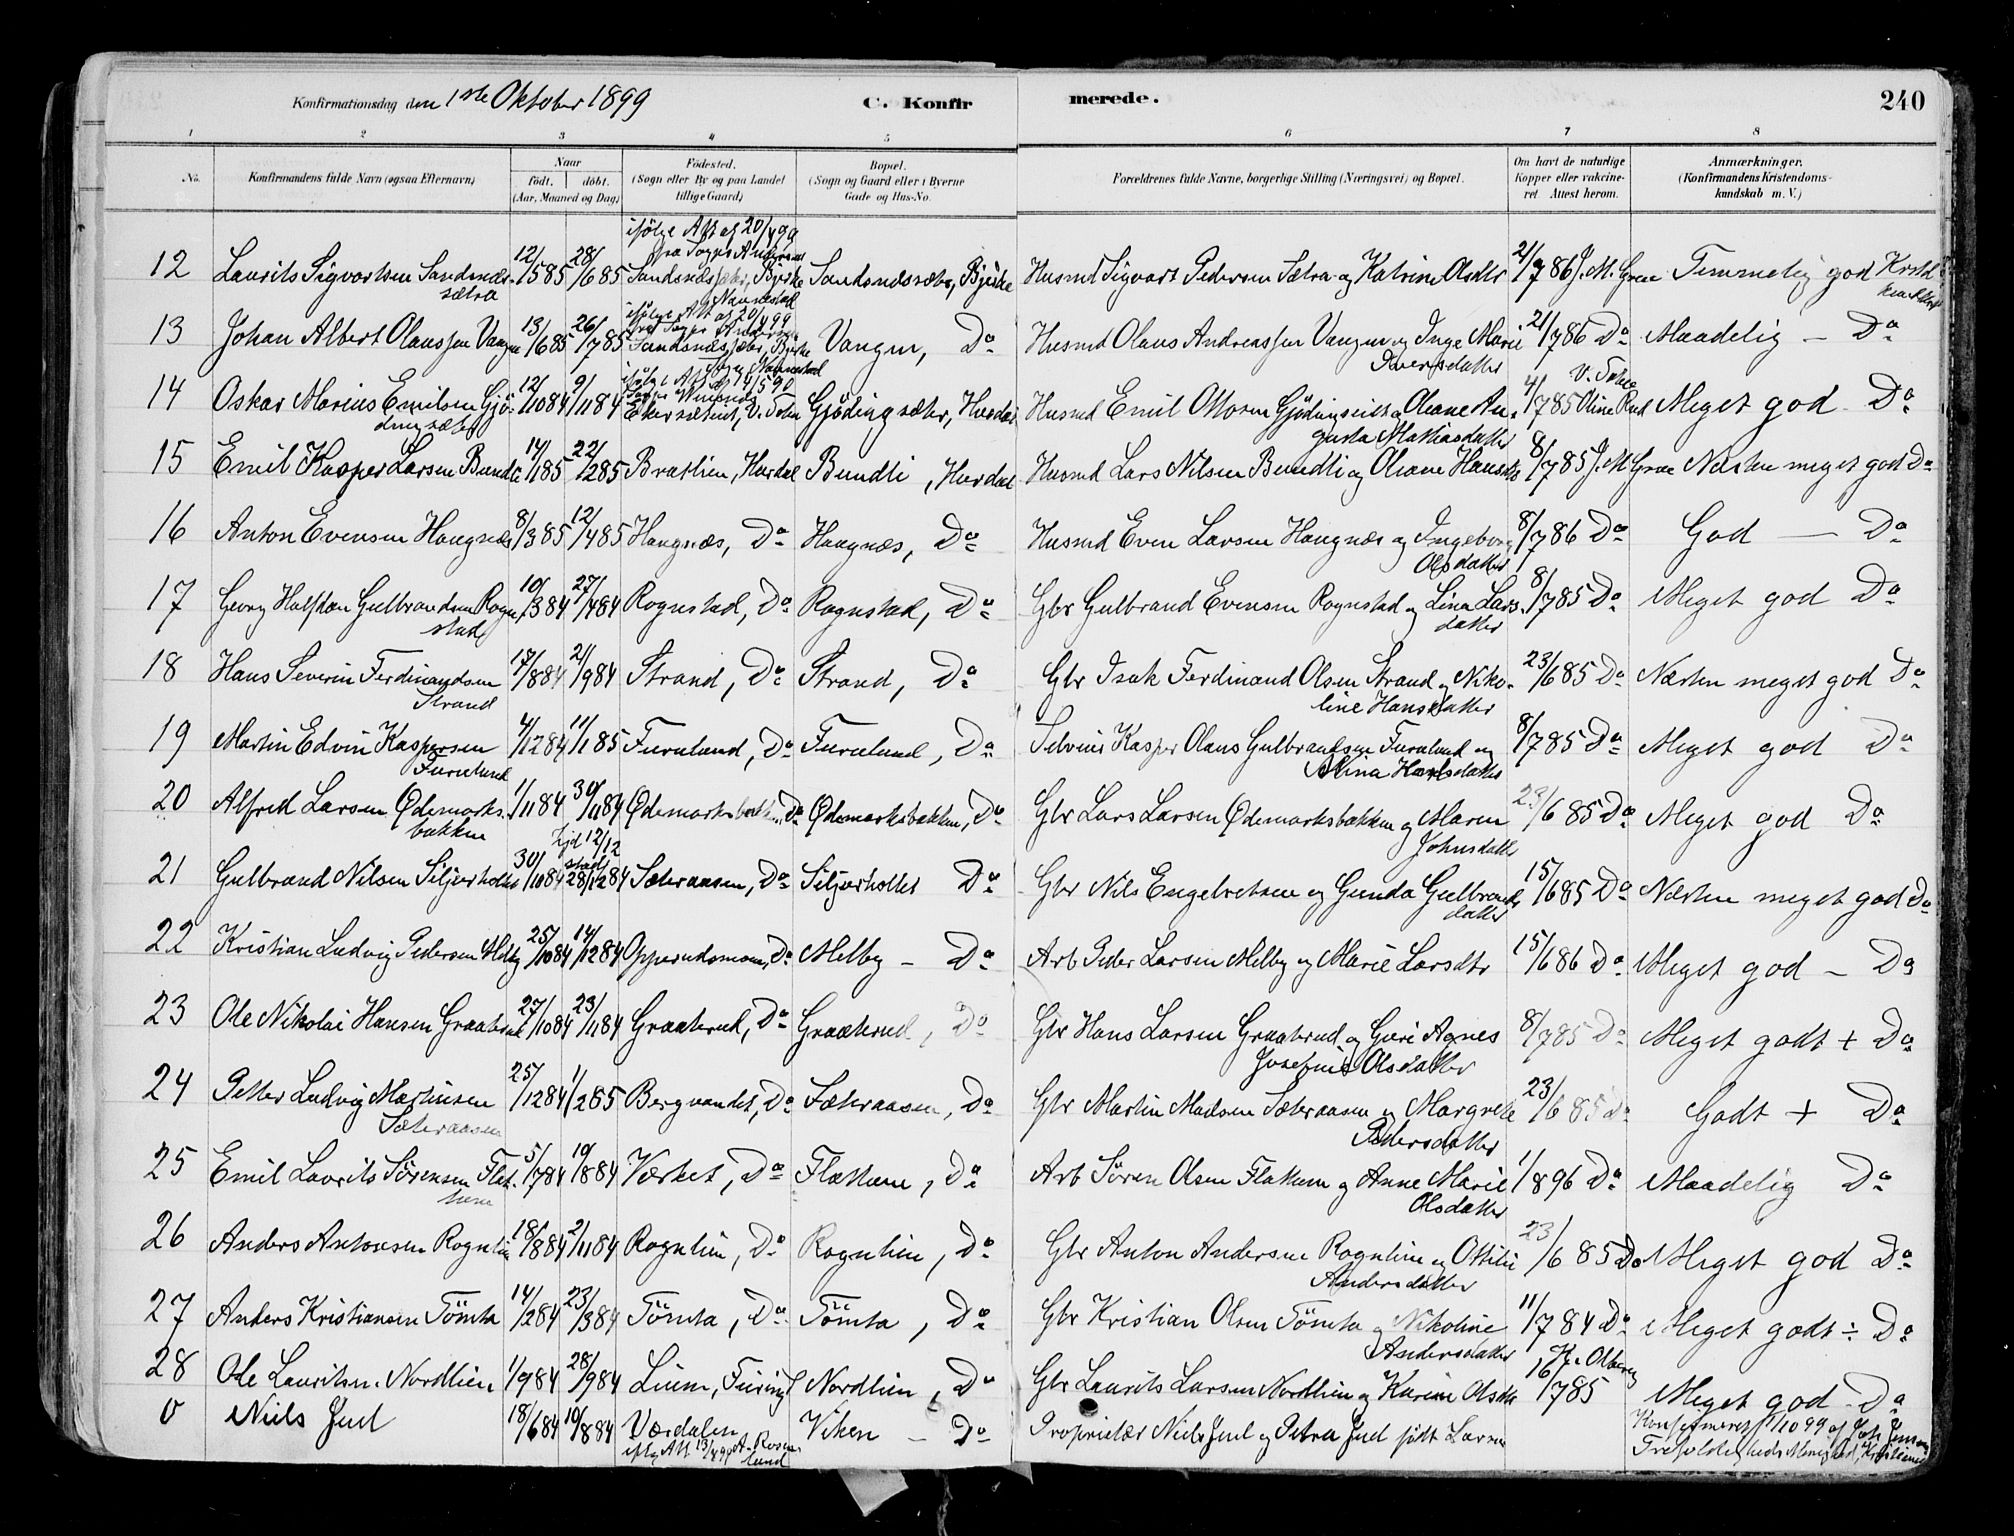 Konfirmationsdag den 1ste Oktober 1899 C. Konfirmerede. 240
1 2 3 4 5 6 7 8
No. Konfirmandens fulde Navn (ogsaa Efternavn) Naar født. døbt. (Aar, Maaned og Dag) Fødested. (Sogn eller By og paa Landet tillige Gaard) Bopæl. (Sogn og Gaard eller i Byerne Gade og Hus-No. Forældrenes fulde Navne, borgerlige Stilling (Næringsvei) og Bopæl. Om havt de naturlige Kopper eller vakcineret Attest herom. Anmærkninger. (Konfirmandens Kristendomskundskab m. V.)
ifølge Att af 20/4 99
12 Laurits Sigvartsen Sandsnæssætra 12/5 85 28/6 85 Sandsnæssæter, Bjerke Nannestad Sandsnæssæter, Bjerke Husmd Sigvart Pedersen Sætra og Katrine Olsdtr 21/7 86 J. M. Groe Temmelig god
ifølge Att af 20/4 99
13 Johan Albert Olaussen Vangen 13/6 85 26/7 85 Sandsnæssæter, Bjerke Vangen, Do Husmd Olaus Andreassen Vangen og Inge Marie Iversdatter 21/7 86 Do Maadelig – Do
14 Oskar Marius Emilsen Gjødingsæter 12/10 84 9/11 84 V. Toten Gjødingsæter, Hurdal Husmd Emil Ottosen Gjødingseiet og Oleane Augusta Mathiasdatter 4/7 85 Oline Rud V. Toten Meget god Do
15 Emil Kasper Larsen Bundli 14/1 85 22/2 85 Bratlien, Hurdal Bundli, Hurdal Husmd Lars Nilsen Bundli og Oleane Hansdtr 8/7 85 J. M Groe Næsten meget god Do
16 Anton Evensen Haugnæs 8/3 85 12/4 85 Haugnæs, Do Haugnæs, Do Husmd Even Larsen Haugnæs og Ingeborg Olsdatter 8/7 86 Do God — Do
17 Georg Halfdan Gulbrandsen Rognstad 10/3 84 27/4 84 Rognstad, Do Rognstad, Do Gbr Gulbrand Evensen Rognstad og Lina Larsdatter 8/7 85 Do Meget god Do
18 Hans Severin Ferdinandsen Strand 17/8 84 21/9 84 Strand, Do Strand, Do Gbr Isak Ferdinand Olsen Strand og Nikoline Hansdatter 23/6 85 Do Næsten meget god Do
19 Martin Edvin Kaspersen Furulund 4/12 84 11/1 85 Furulund, Do Furulund, Do Selveier Kasper Olaus Gulbrandsen Furulund og Alina Hansdatter 8/7 85 Do Meget god Do
20 Alfred Larsen Ødemarksbakken 1/11 84 30/11 84 Ødemarksbakken, Do Ødemarksbakken, Do Gbr Lars Larsen Ødemarksbakken og Maren Johnsdatter 23/6 85 Do Meget god Do
21 Gulbrand Nilsen Siljeholtet 30/10 84 hjd 12/12 stadf 28/12 84 Sæteraasen, Do Siljeholtet Do Gbr Nils Engebretsen og Gunda Gulbrandsdatter 15/6 85 Do Næsten meget god Do
22 Kristian Ludvig Pedersen Melby 25/10 84 14/12 84 Opperudsmoen, Do Melby – Do Arb Peder Larsen Melby og Marie Larsdtr 15/6 86 Do Meget god – Do
23 Ole Nikolai Hansen Graaberud 27/10 84 23/11 84 Graaberud, Do Graaberud, Do Gbr Hans Larsen Graaberud og Guri Agnes Josefine Olsdatter 8/7 85 Do Meget godt + Do
24 Petter Ludvig Martinsen Sæteraasen 25/12 84 1/2 85 Bergvandet, Do Sæteraasen, Do Gbr Martin Madsen Sæteraasen og Margrete Pedersdatter 23/6 85 Do Godt + Do
25 Emil Laurits Sørensen Flathem 5/7 84 10/8 84 Værket, Do Flathem, Do Arb Søren Olsen Flathem og Anne Marie Olsdatter 1/8 96 Do Maadelig Do
26 Anders Antonsen Rognlien 18/8 84 2/11 84 Rognlien, Do Rognlien, Do Gbr Anton Andersen Rognlien og Ottilie Andersdatter 23/6 85 Do Meget god Do
27 Anders Kristiansen Tömta 14/2 84 23/3 84 Tömta, Do Tömta, Do Gbr Kristian Olsen Tömta og Nikoline Andersdatter 11/7 84 Do Meget godt ÷ Do
28 Ole Lauritsen Nordlien 1/9 84 28/9 84 Lium, Feiring Nordlien, Do Gbr Laurits Larsen Nordlien og Karine Olsdtr 16/7 85 Meget god – Do
0 Niels Juel 18/6 84 10/8 84 Værdalen iflg Att 13/4 99 A. Rosenlund Viken – Do Proprietær Niels Juel og Petra Juel født Larsen Konfirmeret 1/10 99 af Joh Jensen